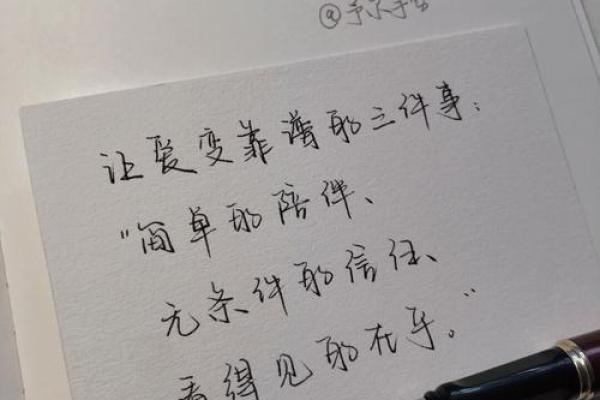 让爱变靠谱的三件事：
“简单的陪伴、
无条件的信任、
看得见的在乎。”